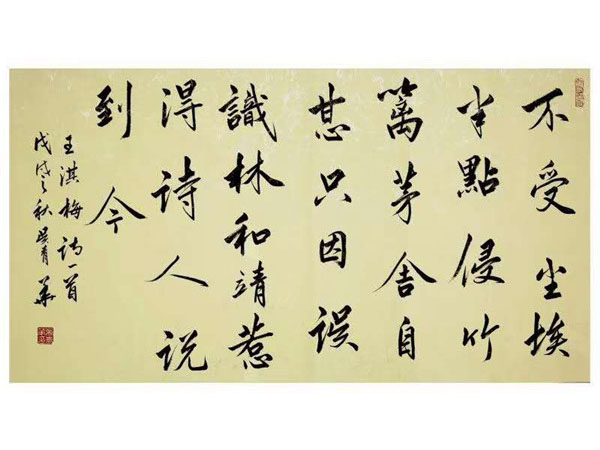 不受尘埃
半點侵竹
篱茅舍自
甘心只因误
識林和靖惹
得诗人说
到今
王淇梅诗一首
戊戌之秋吴青華